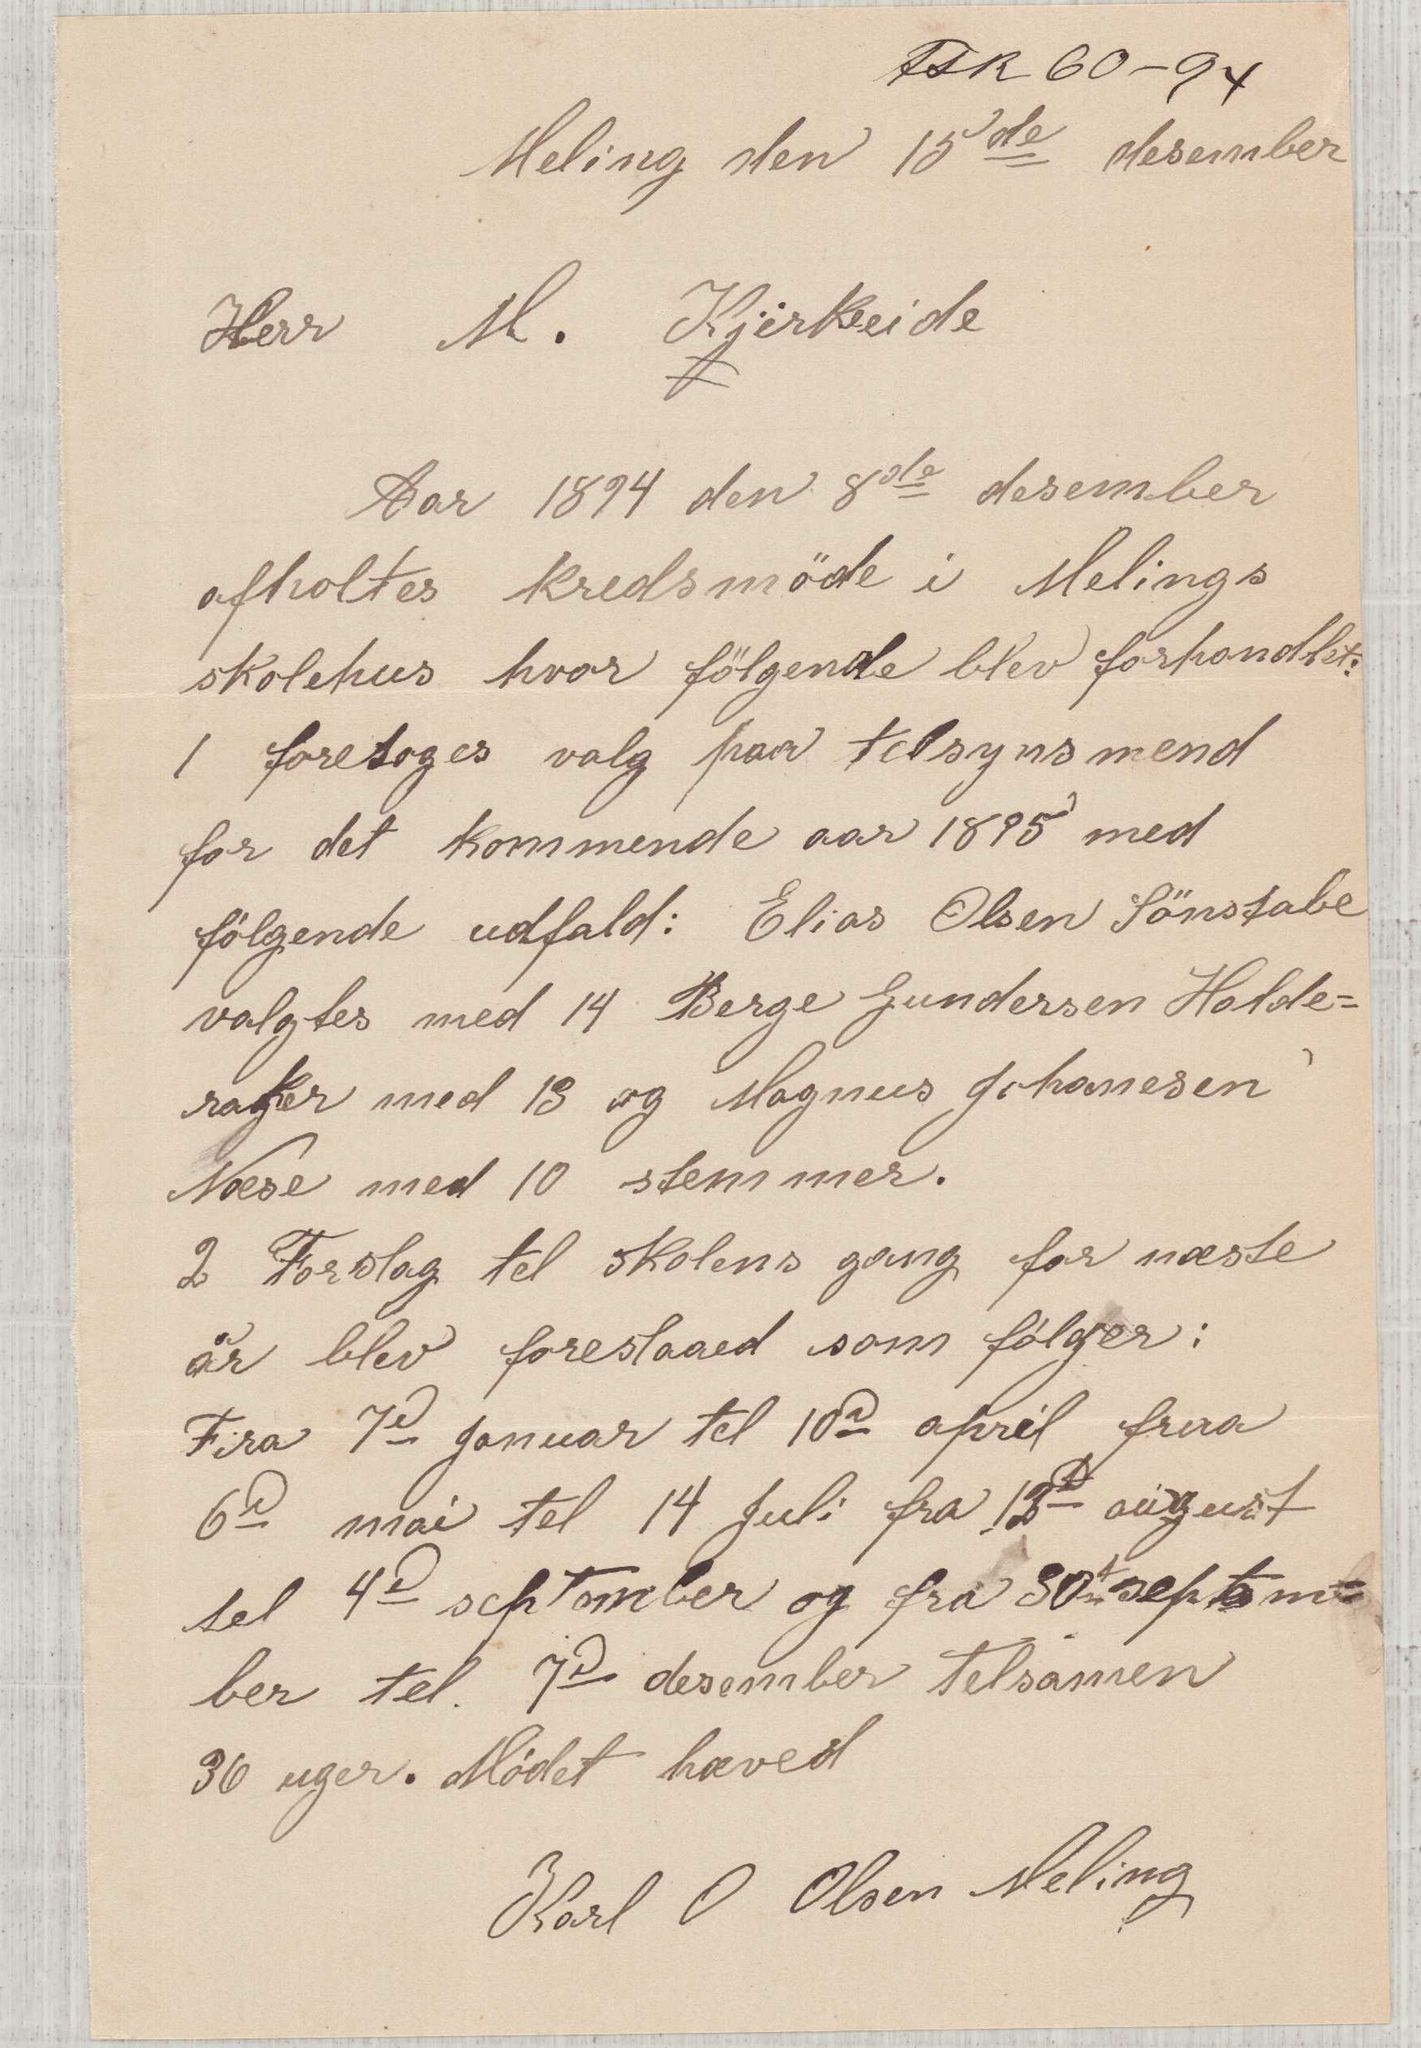 FSK 60-94
Meling den 15de desember
Herr M. Kjerkeide
Aar 1894 den 8de desember
afholtes kredsmöde i Melings
skolehus hvor fölgende blev forhandlet:
1 foretoges valg paa telsynsmend
for det kommende aar 1895 med
fölgende udfald: Elias Olsen Sönstabø
valgtes med 14 Berge Gundersen Halde=
raker med 13 og Magnus Johanesen
Næse med 10 stemmer.
2 Forslag tel skolens gang for næste
år blev foreslaaed som fölger:
Fra 7d Januar tel 10d april fraa
6d mai tel 14 Juli fra august
tel 4d september og fra 30t septem=
ber tel. 7d desember telsamen
36 uger. Mödet hæved
Karl O Olsen Meling